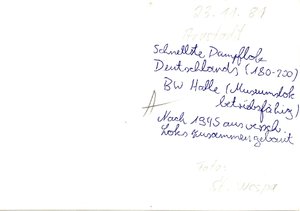 23.11.81
Arnstadt
Schnellste Dampflok
Deutschlands (180-200)
BW Halle (Museumslok
betriebsfähig)
Nach 1945 aus versch.
Loks zusammengebaut
Foto: